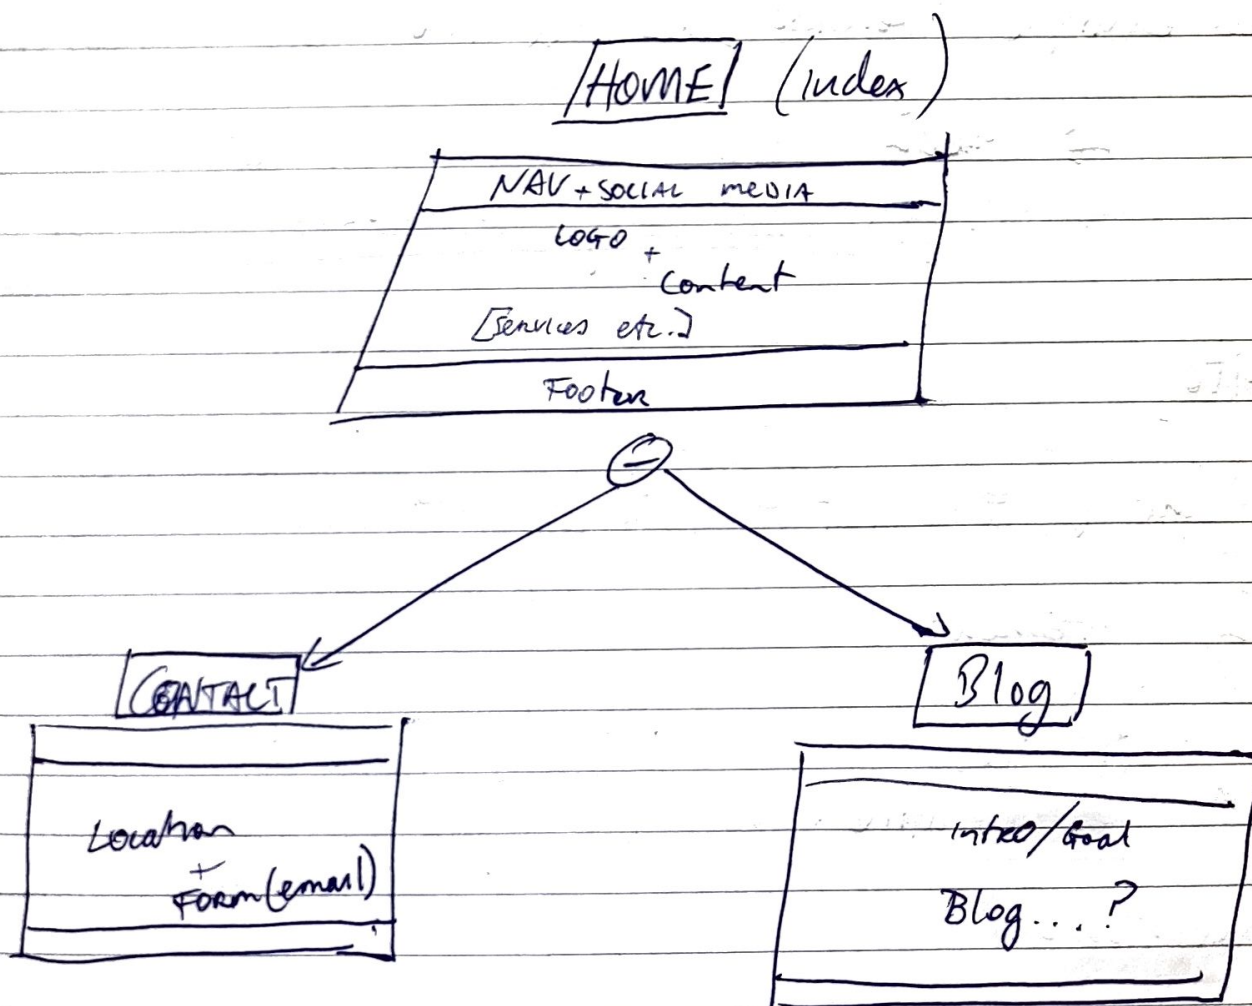 HOME (index)
NAV + SOCIAL MEDIA
LOGO
+
Content
[Services etc.]
Footer
CONTACT
Blog
Location
+
Form (email)
Intro/Goal
Blog...?